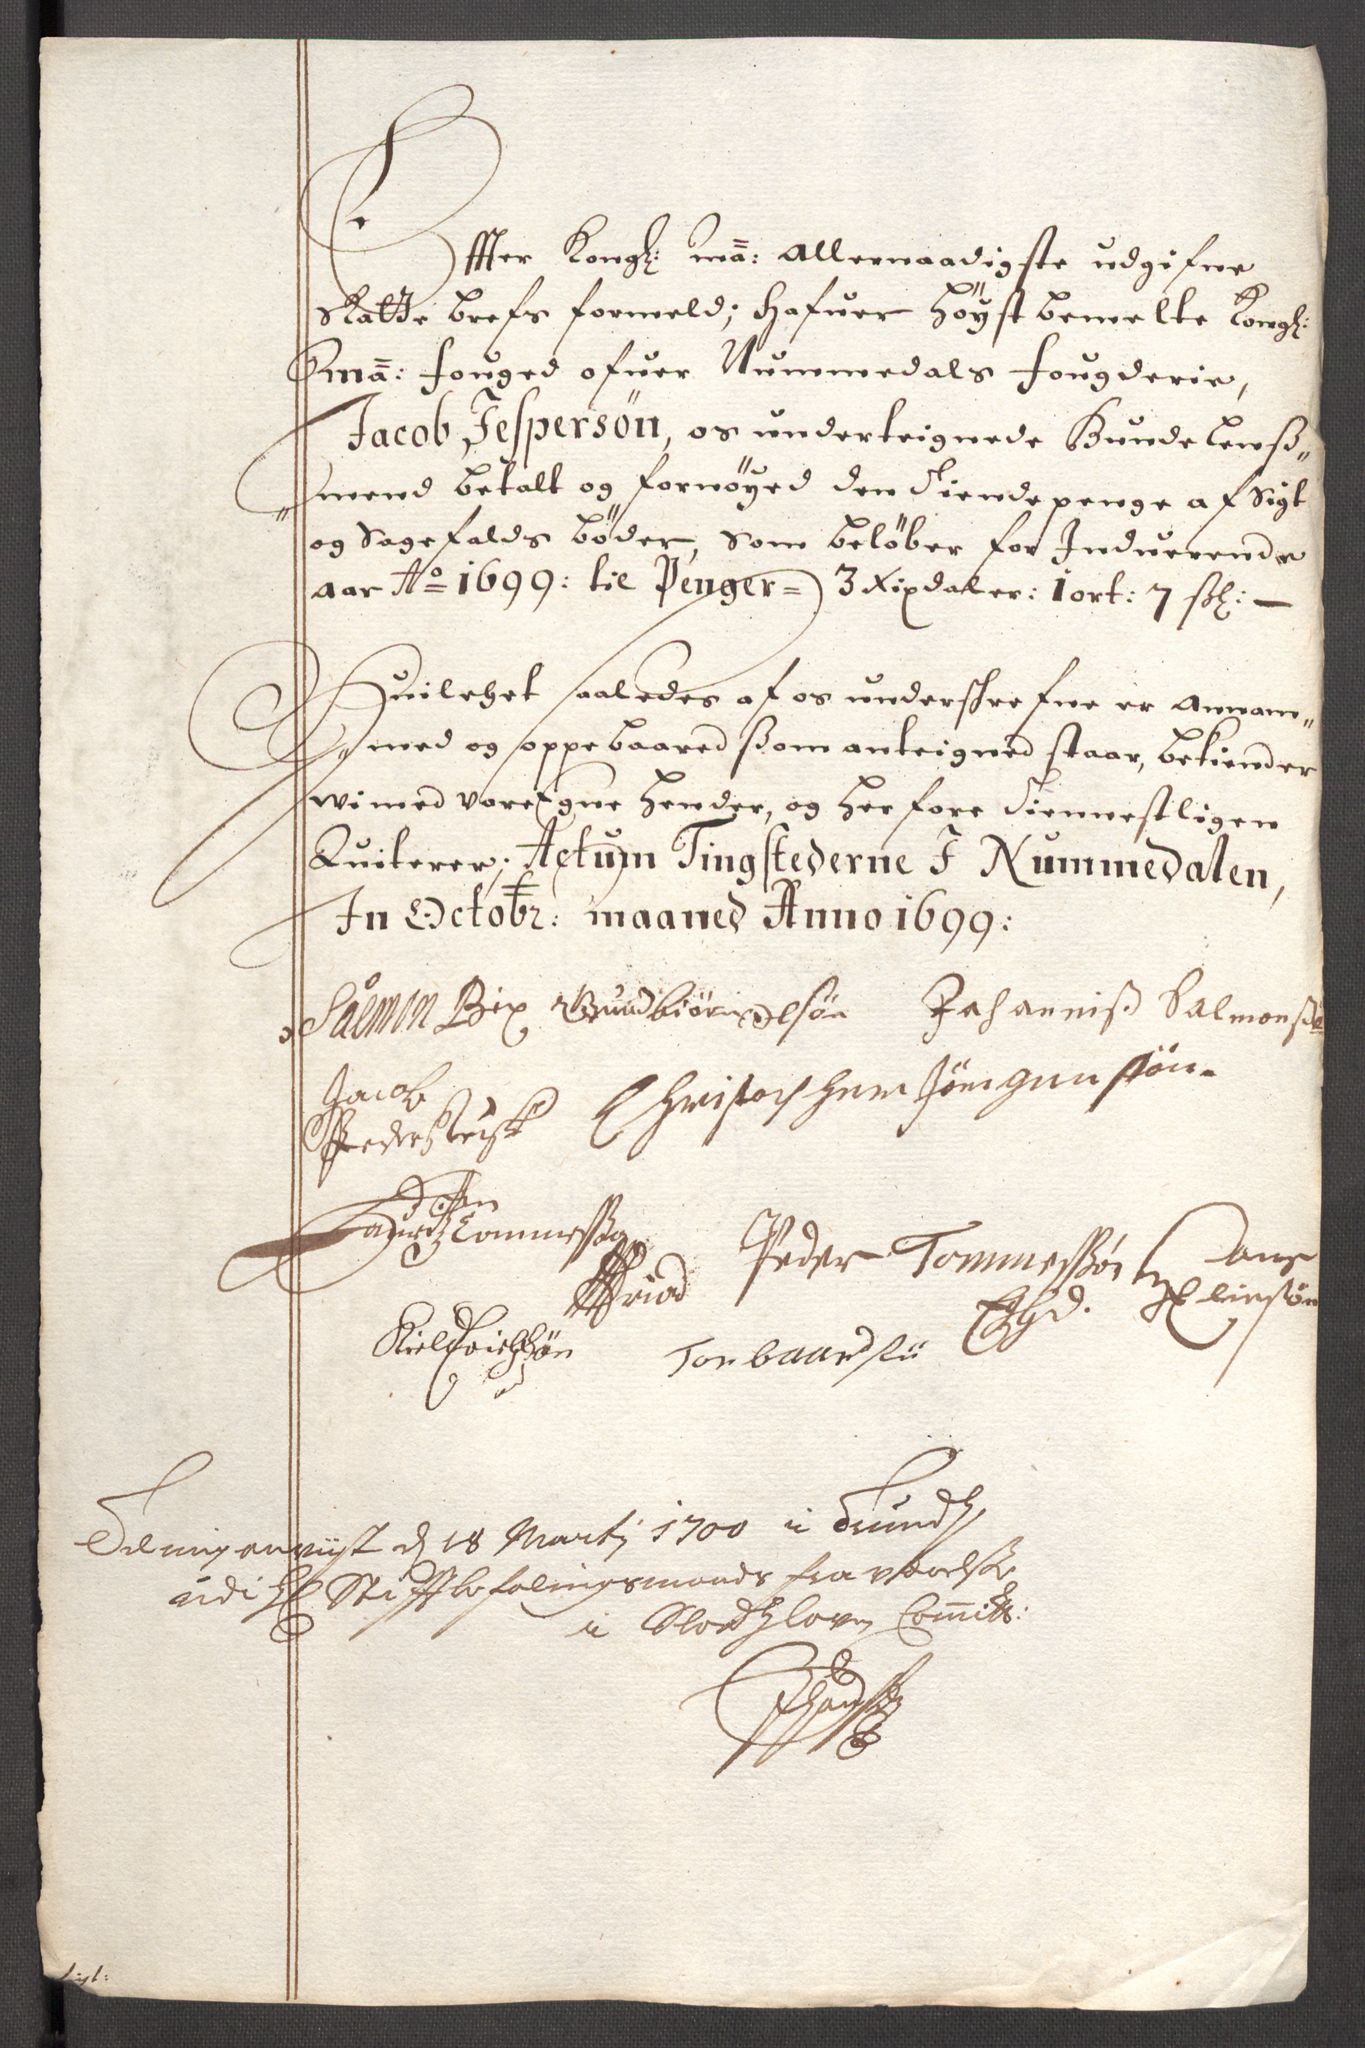 Effter Kongl: ma: Allernaadigste udgifne
Skatte brefs formeld; hafuer höyst bemelte Kongl:
ma: fouged ofuer Nummedals fougderie,
Jacob Jespersön, os underteignede Bunde lenss"
"mend betalt og fornöyed den tiendepenge af Sigt
og Sagefalds böder, som belöber for Induerende
aar Ao 1699: til Penger= 3 Rixdaler: 1 ort: 7 sk: —
Huilchet saaledes af os underschrefne er Annam"
"med og oppebaared som anteigned staar, bekiender
wi med vore Egne hender, og herfore tiennestligen
Quiterer; Actum Tingstederne J Nummedalen,
In Octobr: maaned Anno 1699:
Salmon Bix Gundbiörn Olsön Johanniss Salmonss
Jacob
Pederss Christopher Jörgensön
Lauritz Tommessen
Peder Tommessön Lars
Eliesön
Kield Erichsön Tor baardsen
Tilwiist d 18 Martj 1700 i Trundh
udi Hl Stifftbefalingsmands fraværelsse
i Slodtzlovens Committ: